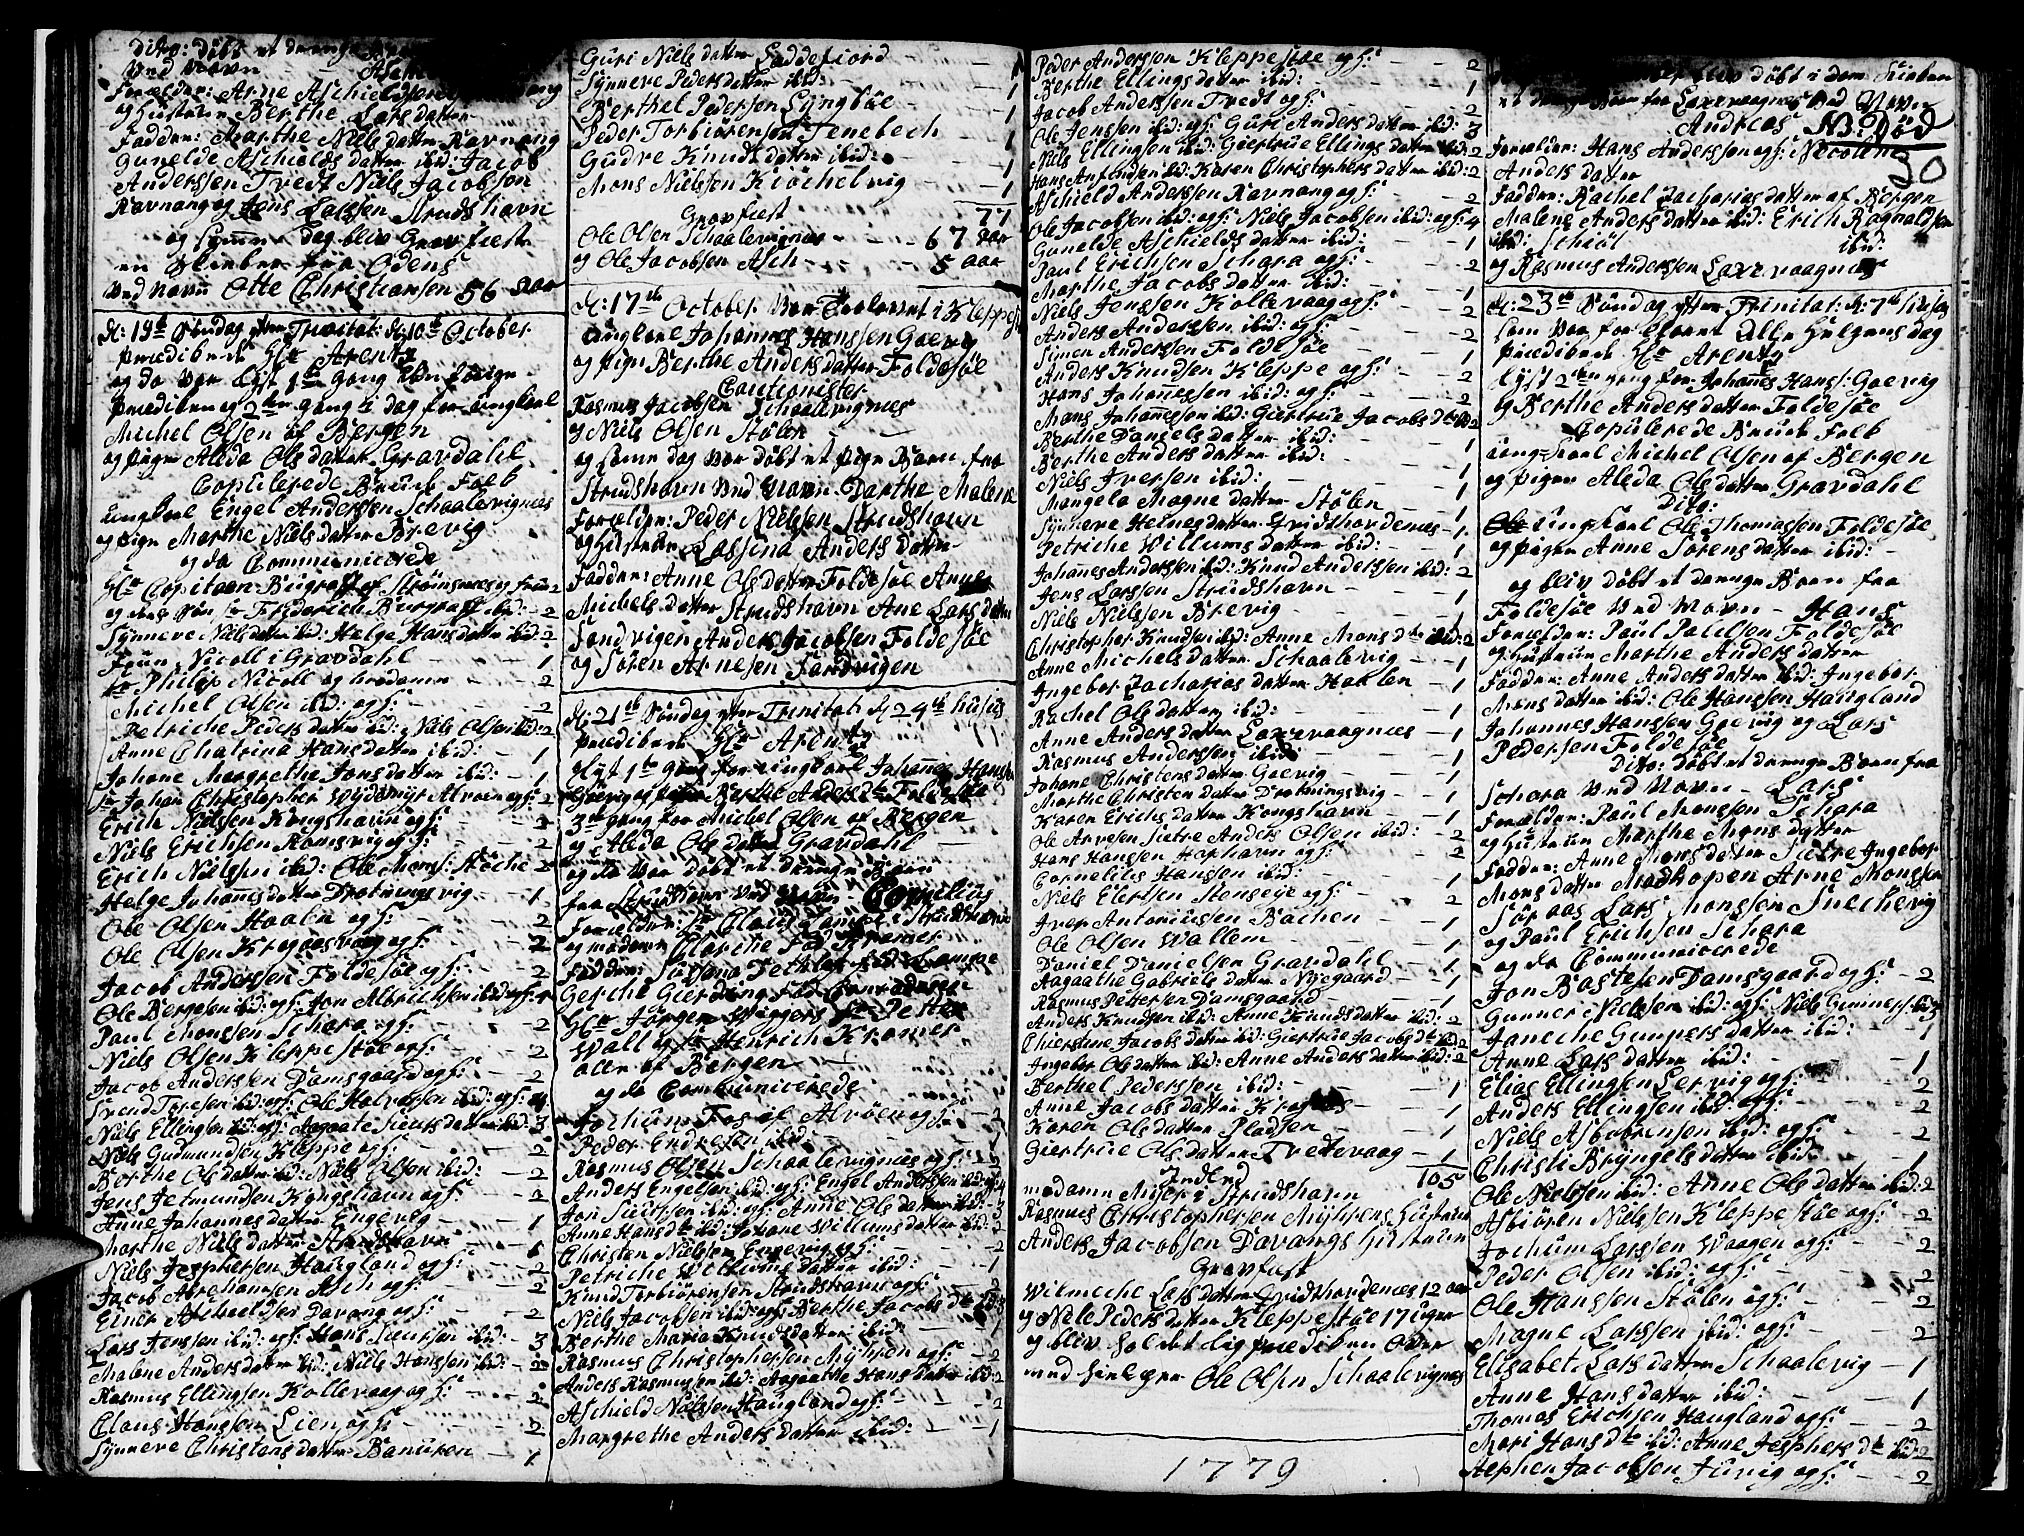 Dito: døbt et drenge
Ved Navn
Forældre: Arne Aschieldsen
og Hustrue Berthe Lars datter
Faddere: Marthe Niels datter Ravnang
Gunelde Aschields datter ibid: Jacob
Anderssen Tvedt Niels Jacobsen
Ravnang og Jens Larssen Strudshavn
og samme dag blev Grav fæstet
Ved Navn Otte Christiansen 56 Aar
D: 19de Søndag efter Trinitat: D: 10de October
Prædikede Hr Arentz
og da var lyst 1te gang
Prædiken og 2den gang i dag for ungkarl
Michel Olsen af Bergen
og pigen Aleda Ols datter Gravdahl
Copulerede Brude Folk
ungkarl Engel Anderssen Schaalevignæs
og Pige Marthe Niels datter Brevig
og da Communicerede
og hans Søn Sr Frederich ibid: 2
Synneve Niels datter ibid: Helge Hans datter ibid: 2
Fruu Nicoll i Gravdahl 1
Sr Philip Nicoll og broderen 2
Michel Olsen ibid: ogf: 2
Petriche Peders datter ibid: Niels Olsen ibid: 2
Anne Chatrina Hans datter ibid: 1
Johane Margrethe Jens datter ibid: 1
Sr Johan Christopher Wydemyr Alvøen ogf: 2
Erich Nielsen Kongshavn ogf: 2
Niels Erichsen Ramsvig ogf: 2
Erich Nielsen ibid: Ole Mons:
Helge Johannes datter Drotningsvig 1
Ole Olsen Haalen ogf: 2
Ole Olsen Kragaasvaag ogf: 2
Jacob Anderssen Foldesøe ogf: 2
Ole Bergesen ibid: ogf: Jon Albrichsen ibid: ogf: 4
Paul Monssen Schara ogf: 2
Niels Olsen Kleppestøe ogf: 2
Jacob Anderssen Damsgaard ogf: 2
Svend Toresen ibid: ogf: Ole Halvorssen ibid: ogf: 4
Niels Ellingsen ibid: ogf: Aagaate Siurs datter ibid: 3
Niels Gudmundsen Kleppe ogf: 2
Berthe Ols datter ibid: Niels Olsen ibid: 2
Jens Jetmundsen Kongshavn ogf: 2
Anne Johannes datter Engevig 1
Marthe Niels datter Strudshavn 1
Niels Jesphersen Haugland ogf: 2
Jacob Abrehamsen Asch ogf: 2
Einer Aschieldsen Davang ogf: 2
Lars Jenssen ibid: ogf: Hans Siursen ibid: 3
Malene Anders datter ibid: Niels Hanssen ibid: 2
Rasmus Ellingsen Kollevaag ogf: 2
Claus Hanssen Lien ogf: 2
Synneve Christens datter Banuren 1
Guri Niels datter Laddefiord 1
Synneve Peders datter ibid: 1
Berthel Pedersen Lyngbøe 1
Peder Torbiørensen Tenebech 1
Gudre Knuds datter ibid: 1
Mons Nielssen Kiøchelvig 1
77
Gravfæst
Ole Olsen Schaalevignæs 67 Aar
og Ole Jacobsen Asch 5 aar
D: 17de October var Trolovet i Kleppestøe
ungkarl Johannes Hanssen Gaevig
og pige Berthe Anders datter Foldesøe
Cautionister
Rasmus Jacobsen Schaalevignæs
og Niels Olsen Stølen
og samme dag var døbt et pige Barn fra
Strudshavn Ved Navn Darthe Malene
Forældre: Peder Nielssen Strudshavn
og Hustrue Lassina Anders datter
Faddere: Anne Ols datter Foldesøe Anne
Michels datter Strudshavn Ane Lars datter
Sandvigen Anders Jacobsen Foldesøe
og Søren Arnesen Sandvigen
D: 21de Søndag efter Trinitat: D: 24de hujus
prædikede Hr Arentz
lyst 1te gang for ungkarl Johannes Hanssen
Gaevig og pige Berthe Anders dtr Foldesøe
3die gang for Michel Olsen af Bergen
og Aleda Ols datter Gravdahl
og da var døbt et drenge Barn
fra Strudshavn Ved Navn Cornelius
Forældre: Sr Claud Lamme i Strudshavn
og madame Clarche Fød Kramer
Faddere: Susana Fød Lamme
Gerche Gierding Fød
Hr Jørgen Wiggers Sr Petter
Wall og Sr Henrich Kramer
alle af Bergen
og da Communicerede
Jochum Fos af Alvøen ogf: 2
Peder Endresen ibid: 1
Rasmus Olsen Schaalevignæs ogf: 2
Anders Engelsen ibid: ogf: Engel Anderssen ibid: ogf: 4
Jon Siurssen ibid: ogf: Anne Ols datter ibid: 3
Anne Hans dtr ibid: Johane Willums datter ibid: 2
Christen Nielsen Engevig ogf: 2
Petriche Willums datter ibid: 1
Knud Torbiørensen Strudshavn ogf: 2
Niels Jacobsen ibid: ogf: Berthe Jacobs dtr ibid: 3
Berthe Maria Knuds datter ibid: 1
Rasmus Christophersen Myhren ogf: 2
Anders Rasmussen ibid: Aagaathe Hans datter ibid: 2
Aschield Nielssen Haugland ogf: 2
Margrethe Anders datter ibid: 1
Peder Anderssen Kleppestøe ogf: 2
Berthe Ellings datter ibid: 1
Jacob Anderssen Tvedt ogf: 2
Ole Jenssen ibid: ogf: Guri Anders datter ibid: 3
Niels Ellingsen ibid: Giertrue Ellings datter ibid: 2
Hans Antonsen ibid: Karen Christophers datter ibid: 2
Aschield Anderssen Ravnang ogf: 2
Ole Jacobsen ibid: ogf: Niels Jacobsen ibid: ogf: 4
Gunelde Aschields datter ibid: 1
Paul Erichsen Schara ogf: 2
Marthe Jacobs datter ibid: 1
Niels Jenssen Koltevaag ogf: 2
Anders Anderssen ibid: ogf: 2
Simen Anderssen Foldesøe 1
Anders Knudsen Kleppe ogf: 2
Hans Johannessen ibid: ogf: 2
Mons Johannessen ibid: Giertrue Jacobs dtr ibid: 2
Berthe Daniels datter ibid: 1
Berthe Anders datter ibid: 1
Niels Iversen ibid: 1
Mangela Magne datter Stølen 1
Synneve Helnes datter Qvidthordenæs 1
Petriche Willums datter ibid: 1
Johannes Anderssen ibid: Knud Anderssen ibid: 2
Jens Larssen Strudshavn 1
Niels Nielssen Brevig 1
Christopher Knudsen ibid: Anne Mons dtr ibid: 2
Anne Michels datter Schaalevig 1
Ingebor Zacharias datter Haalen 1
Rachel Ols datter ibid: 1
Anne Anders datter Laxevaagnæs 1
Rasmus Anderssen ibid: 1
Johane Christens datter Gaevig 1
Marthe Christen datter Drotningsvig 1
Karen Erichs datter Kongshavn 1
Ole Arnesen Sietre Anders Olsen ibid: 2
Hans Hanssen Hophavn ogf: 2
Cornelius Hanssen ibid: 1
Niels Elertsen Stenseje ogf: 2
Iver Antoniussen Bachen 1
Ole Olsen Wallem 1
Daniel Danielsen Gravdahl 1
Aagaathe Gabriels datter Nygaard 1
Rasmus Pettersen Damsgaard 1
Anders Knudsen ibid: Anne Knuds datter ibid: 2
Chierstine Jacobs datter ibid: Giertrue Jacobs dtr ibid: 2
Ingebor Ols datter ibid: Anne Anders datter ibid: 2
Berthel Pederssen ibid: 1
Anne Jacobs datter 1
Karen Ols datter Pladsen 1
Giertrue Ols datter Tvedtevaag 1
105
Indled
madame Myer i Strudshavn
Rasmus Christophersen Myhrens Hustrue
Anders Jacobsen Davangs Hustrue
Gravfæst
Wilmeche Lars datter Qvidthordenæs 12 aar
og Nele Peders datter Kleppestøe 17 uger
og blev holdet lig prædiken over
Ole Olsen Schaalevignæs
1779
blev døbt i dom Kirken
et drenge Barn fra Laxevaagnæs Ved Navn
Andreas NB: Død
30
Forældre: Hans Anderssen ogf: Nicoline
Anders datter
Faddere: Rachel Zacharias datter af Bergen
Malene Anders datter ibid: Erich Ragnaldsen
ibid:
og Rasmus Anderssen Laxevaagnæs
D: 23de Søndag efter Trinitat: D: 7de hujus
som var forklaret Alle Helgens dag
prædikede Hr Arentz
lyst 2den gang for Johannes Hans: Gaevig
og Berthe Anders datter Foldesøe
Copulerede Brude Folk
ungkarl Michel Olsen af Bergen
og pigen Aleda Ols datter Gravdahl
Dito:
ungkarl Ole Thomassen Foldesøe
og pigen Anne Sørens datter ibid:
og blev døbt et drenge Barn fra
Foldesøe Ved Navn Hans
Forældre: Paul Palelsen Foldesøe
og Hustrue Marthe Anders datter
Faddere: Anne Anders datter ibid: Ingebor
Mons datter ibid: Ole Hanssen Haugland
Johannes Hanssen Gaevig og Lars
Pedersen Foldesøe
Dito: døbt et drenge Barn fra
Schara Ved Navn Lars
Forældre: Paul Monssen Schara
og Hustrue Marthe Mons datter
Faddere: Anne Mons datter Sietre Ingebor
Mons datter Madhopen Arne Monssen
Søraas Lars Monssen Snechevig
og Paul Erichsen Schara
og da Communicerede
Jon Bastesen Damsgaard ogf: 2
Gunner Nielssen ibid: ogf: Niels Gunners: ibid: 3
Janeche Gunners datter ibid: 1
Anne Lars datter ibid: 1
Elias Ellingsen Lervig ogf: 2
Anders Ellingsen ibid: ogf: 2
Niels Asbiørensen ibid: ogf: 2
Christi Bryngels datter ibid: 1
Ole Nielssen ibid: Anne Ols datter ibid: 2
Asbiøren Nielssen Kleppestøe ogf: 2
Jochum Larssen Waagen ogf: 2
Peder Olsen ibid: ogf: 2
Ole Hanssen Stølen ogf: 2
Magne Larssen ibid: ogf: 2
Elisabet Lars datter Schaalevig 1
Anne Hans datter ibid: 1
Thomas Erichsen Haugland ogf: 2
Mari Hans dtr ibid: Anne Jesphers dtr ibid: 2
Stephen Jacobsen Juvig ogf: 2